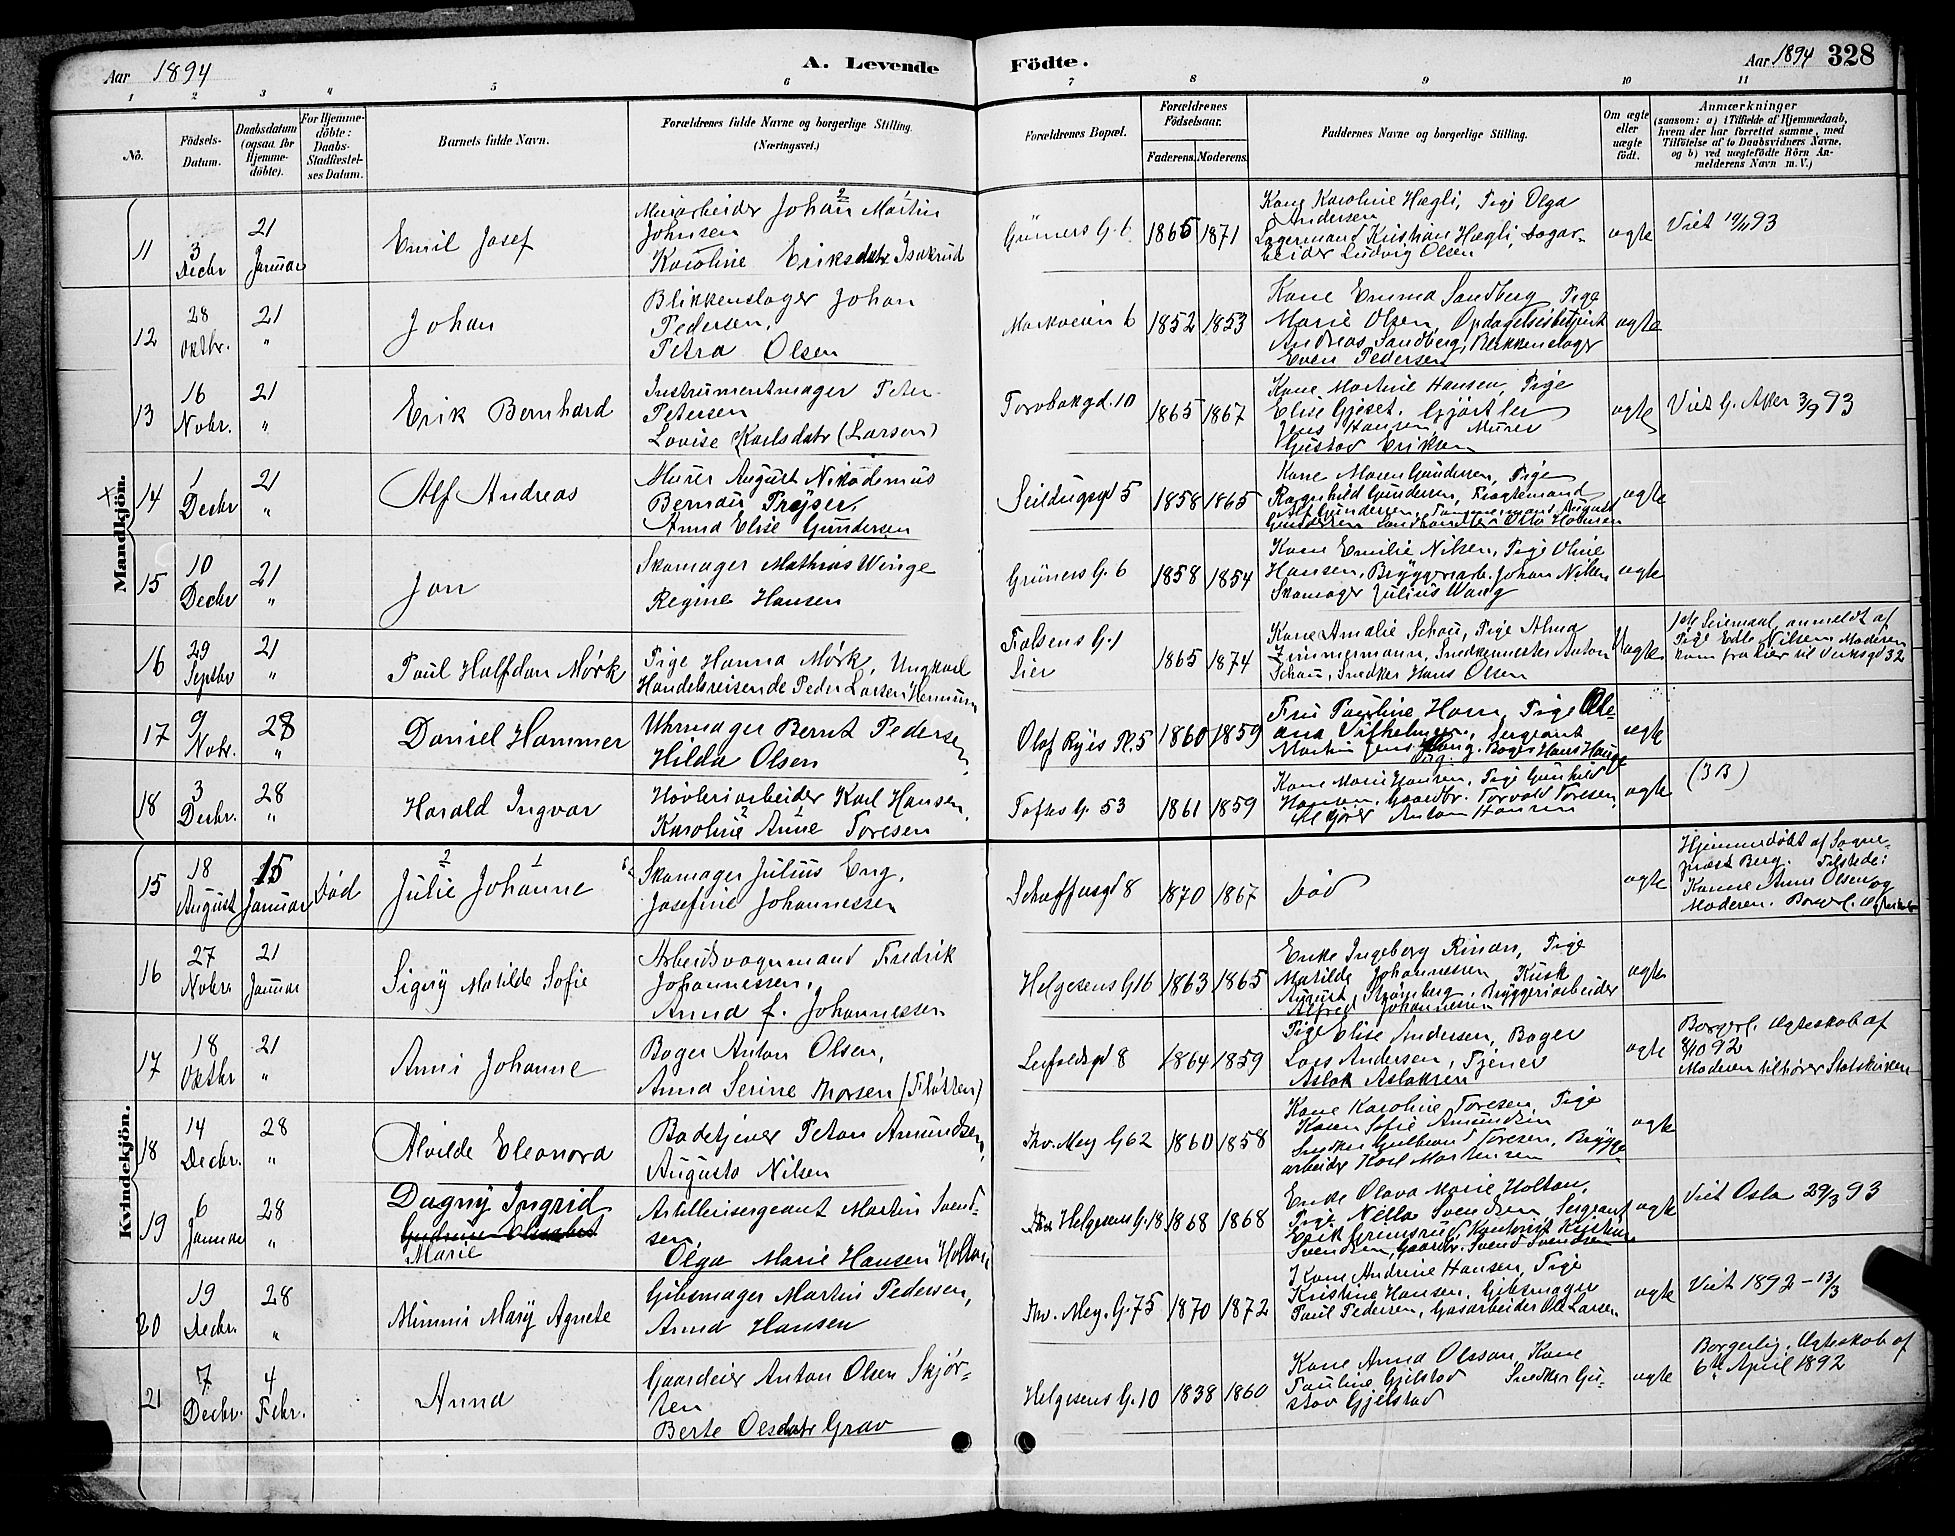 Aar 1894
A. Levende Födte.
Aar 1894 328
1 2 3 4 5 6 7 8 9 10 11
No.
Födsels-
Datum.
Daabsdatum
(ogsaa for
Hjemme-
döbte).
For Hjemme-
döbte:
Daabs-
Stadfæstel-
ses Datum.
Barnets fulde Navn.
Forældrenes fulde Navne og borgerlige Stilling.
(Næringsvei.)
Forældrenes Bopæl.
Forældrenes
Födselsaar.
Faderens. Moderens.
Faddernes Navne og borgerlige Stilling.
Om ægte
eller
uægte
födt.
Anmærkninger
(saasom: a) i Tilfælde af Hjemmedaab,
hvem der har forrettet samme, med
Tilföielse af to Daabsvidners Navne,
og b) ved uægtefödte Börn An-
melderens Navn m. V.)
Mandkjön.
11
3
Decbr
21
Januar
Emil Josef
Murarbeider Johan Martin
Johnsen
Karoline Eriksdatr Isakrud
Grüners G. 6
1865 1871
Kone Karoline Hægli, Pige Olga
Andersen
Lagermand Kristian Hægli,
Ludvig Olsen
ægte
Viet 93
12
28
Oktbr.
21
"
Johan
Blikkenslager Johan
Pedersen,
Petra Olsen
Markveien 6
1852 1853
Kone Emma Sandberg, Pige
Marie Olsen, Opdagelsesbetjent
Andreas Sandberg, Blikkenslager
Even Pedersen
ægte
13
16
Novbr.
21
"
Erik Bernhard
Instrumentmager Peter
Petersen
Lovise Karlsdatr (Larsen)
Torvbakgd. 10
1865 1867
Kone Martine Hansen, Pige
Elise Gjeset, Gjørtler
Jens Hansen, Murer
Gustav Eriksen
ægte
Viet G. Aker 3/9 93
14
1
Decbr
21
"
Alf Andreas
Murer August Nikodemus
Bernau Prøjser,
Anna Elise Gundersen
Seildugsgd 5
1858 1865
Kone Maren Gundersen, Pige
Ragnhild Gundersen, Fragtemand
Alf Gundersen, Tømmermand August
Gundersen Otto Halvorsen
ægte
15
10
Decbr
21
"
Jon
Skomager Mathias Winge
Regine Hansen
Grüners G. 6
1858 1854
Kone Emilie Nilsen, Pige Oline
Hansen, Bryggeriarb. Johan Nilsen
Skomager Julius Wang
ægte
16
29
Septbr
21
"
Paul Halfdan Mørk
Pige Hanna Mørk, Ungkarl
Handelsreisende Peder Larsen Hemnum
Falsens G. 1
Lier
1865 1874
Kone Amalie Schau, Pige Alma
Zimmermann, Snedkermester Anton
Schau, Snedker Hans Olsen
Uægte
1ste Leiermaal, anmeldt af
Pige Edle Nilsen, Moderen
kom fra Lier til Verksgd 32
17
9
Novbr.
28
"
Daniel Hammer
Uhrmager Bernt Pedersen,
Hilda Olsen
Olaf Ryes Pl. 5
1860 1859
Fru Pauline Horn, Pige Ole-
ana Vilhelmsen, Sergeant
Martin Jens Haug, Bager Hans Hauge
ægte
18
3
Decbr.
28
"
Harald Ingvar
Høvleriarbeider Karl Hansen,
Karoline Anne Toresen
Toftes G. 53
1861 1859
Kone Marie Hansen, Pige Gunhild
Hansen, Gaardbr. Torvald Toresen,
Anton Hansen
ægte
(3 B)
Kvindekjön.
15
18
August
15
Januar
Død
Julie Johanne
Skomager Julius Eng,
Josefine Johannessen
Schafteusgd 8
1870 1867
Død
ægte
Hjemmedøbt af Sogne-
præst Berg. Tilstede:
Konne Anne Olsen og
Moderen. Borgerl. Ægteskab
16
27
Novbr.
21
Januar
Signy Matilde Sofie
Arbeidsvognmand Fredrik
Johannessen,
Anna f. Johannessen
Helgesens G 16
1863 1865
Enke Ingeborg Rinan, Pige
Matilde Johannessen, Kusk
August Strømberg, Bryggeriarbeider
Alfred Johannessen
ægte
17
18
Oktbr
21
"
Anni Johanne
Bager Anton Olsen,
Anna Serine Thorsen (Fløtten)
Leifaldsgd 8
1864 1859
Pige Elise Andersen, Bager
Lars Andersen, Tjener
Aslak Aslaksen
ægte
Borgerl. Ægteskab af
8/10 92
Moderen tilhører Statskirken
18
14
Decbr.
28
"
Alvilde Eleonora
Badetjener Petar Amundsen,
Augusta Nilsen
Thv. Mey. G 62
1860 1858
Kone Karoline Toresen, Pige
Karen Sofie Amundsen
Snedker Gulbrand Toresen, Brygge-
arbeider Karl Martinsen
ægte
19
6
Januar
28
"
Dagny Ingrid
Marie
Artillerisergeant Martin Svend-
sen,
Olga Marie Hansen Holtan
Helgesens G. 18
1868 1868
Enke Olava Marie Holtan,
Pige Nella Svendsen, Sergeant
Erik Grensrud, Kontorist Kristian
Svendsen, Gaardbr. Svend Svendsen
ægte
Viet Oslo 29/3 93
20
19
Decbr.
28
"
Mimmi Mary Agnete
Gibsmager Martin Pedersen,
Anna Hansen
Thv. Mey. G. 75
1870 1872
Kone Andrine Hansen, Pige
Kristine Hansen, Gibsmager
Paul Pedersen, Gasarbeider Ole Larsen
ægte
Viet 1892 - 13/3
21
7
Decbr.
4
Febr.
Anna
Gaardeier Anton Olsen Skjør-
ten
Berte Olesdatr Grav
Helgesens G. 10
1838 1860
Kone Anna Olsson, Kone
Pauline Gjelstad Snedker Gu-
stav Gjelstad
ægte
Borgerlig Ægteskab af
6te April 1892